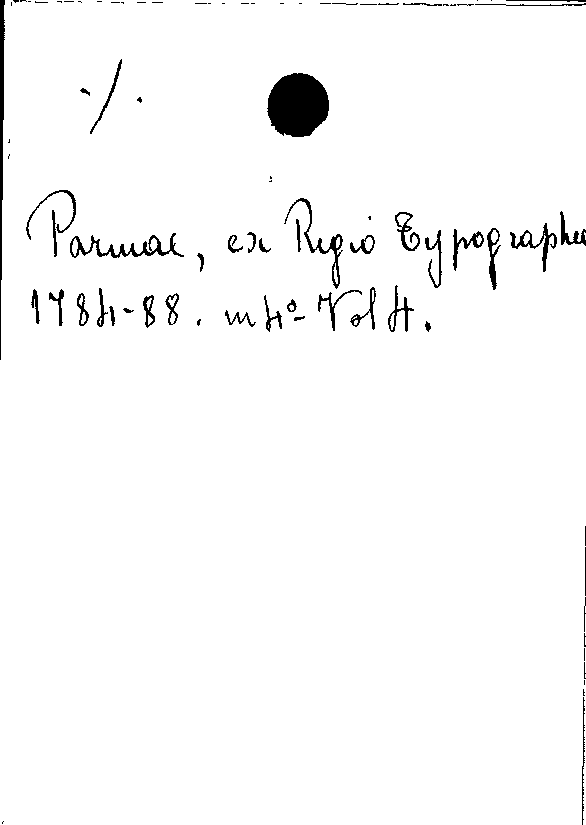 ./.
Parmae, ex Regio Typographeo
1784-88. in 4º- Vol 4.